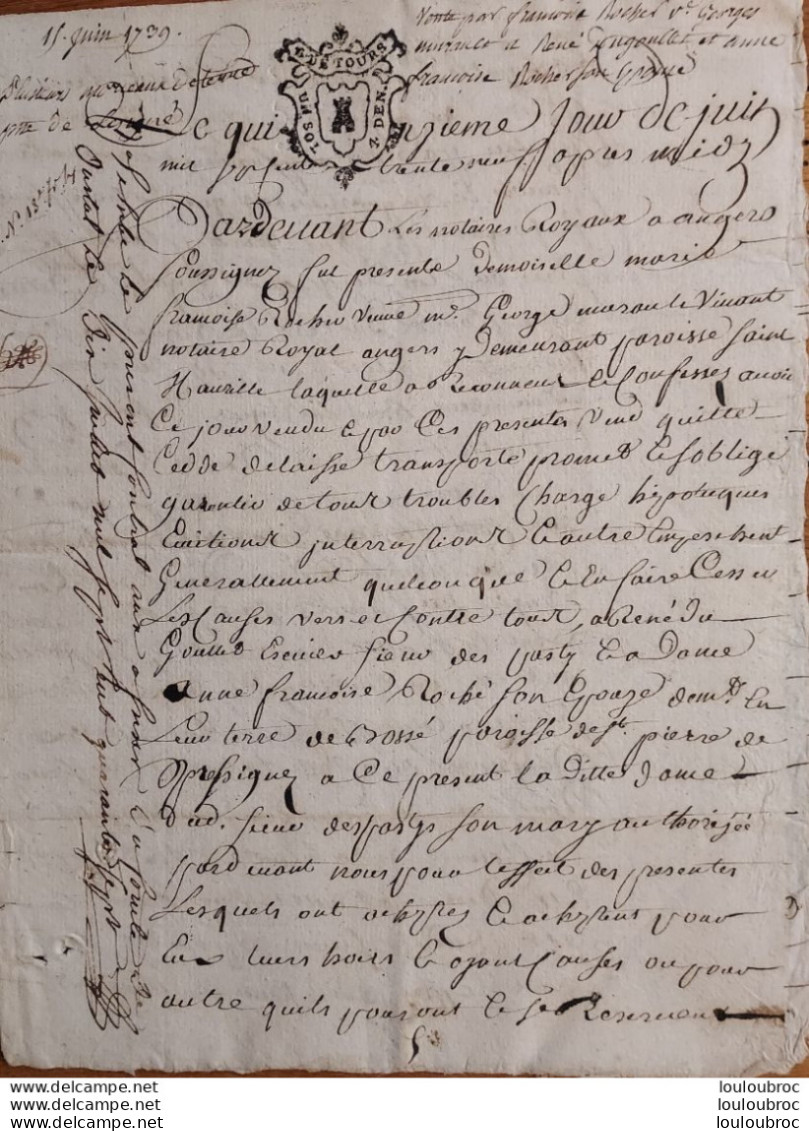 15. juin 1739.
Vente par francoise Rocher v.e Georges
et René dugoullet et anne
francoise Rocher son Epouse
G. DE TOURS
UN SOL
2. DEN.
Ce quinzieme Jour de juin
mil sept cent trente neuf apres midy
Pardevant Les notaires Royaux a angers
soussignez fut presente demoiselle marie
francoise Rocher veuve m.e George vivant
notaire Royal angers y Demeurant paroisse saint
Maurille laquelle a Reconneue et Confessé avoir
Ce jour vendu et par Ces presentes vend quitte
cedde delaisse transporte promet et soblige
garentir de tous troubles Charge hypoteques
Evictions interruptions et autre Empeschent
Generallement quelconque et En faire Cesser
Les Causes vers et Contre tous, a René du
Goullet Escuier sieur des pasty et a Dame
Anne francoise Roché son Epouze dem.t En
Leur terre de paroisse de st. pierre de
Pressigney a Ce present la ditte dame
dud. sieur despastys son mary authorizée
pardevant nous pour leffet des presentes
Lesquels ont acheptez et acheptent pour
Eux leurs hoirs et ayant Causes ou pour
autre quils pouront et se Reservent
Controlé le present Contrat
le Dix juillet mil sept cent quarante sept
louloubroc
louloubroc
louloubroc